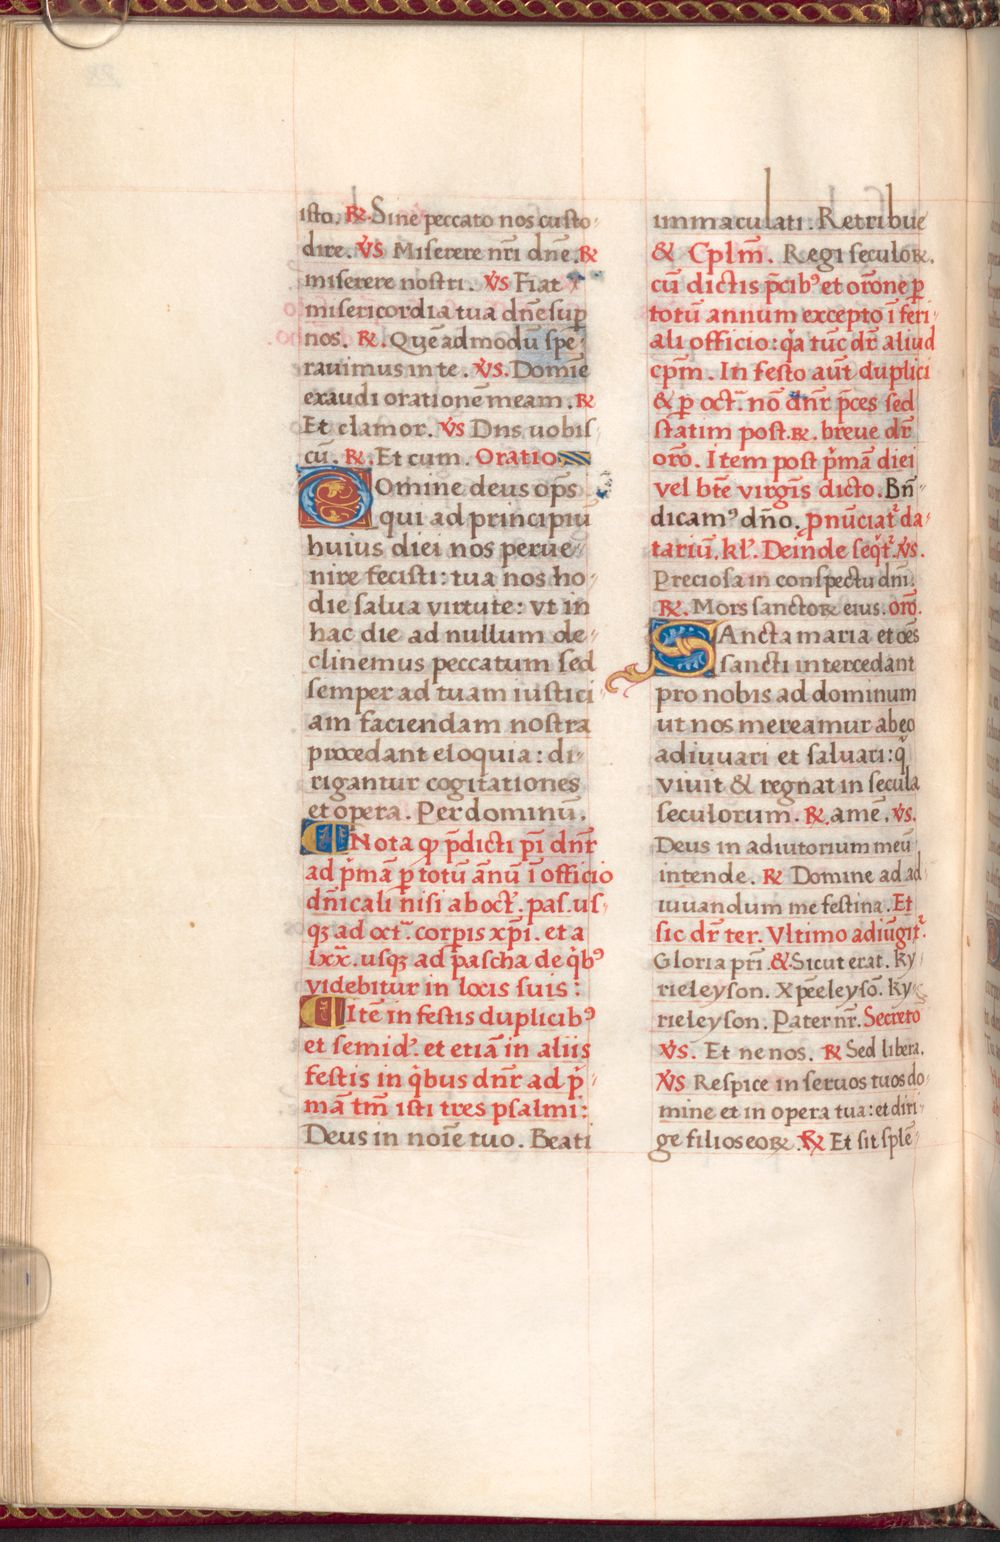 isto. ℞. Sine peccato nos custo-
dire. V̄S Miserere nr̄i dn̄e. ℞
miserere nostri. V̄S Fiat
misericordia tua dn̄e suꝑ
nos. ℞. Quē ad modū spe-
rauimus in te. V̄S. Domīe
exaudi orationē meam. ℞
Et clamor. V̄S Dn̄s uobis-
cū. ℞. Et cum. Oratio
Domine deus op̄s
qui ad principiū
huius diei nos perue-
nire fecisti: tua nos ho-
die salua virtute: vt in
hac die ad nullum de-
clinemus peccatum sed
semper ad tuam iustici-
am faciendam nostra
procedant eloquia: di-
rigantur cogitationes
et opera. Per dominū.
Nota ꝙ p̄dicti p̄i dn̄r
ad p̍mā ꝑ totū ānū ī officio
dn̄icali nisi ab oct̄. pas. us-
qꝫ ad oct̄. corꝑis xp̄i. et a
lxx̄. usqꝫ ad pascha de q̍bꝰ
videbitur in locis suis:
Itē in festis duplicibꝰ
et semid̓. et etiā in aliis
festis in q̍bus dn̄r ad p̍-
mā tm̄ isti tres psalmi:
Deus in noīe tuo. Beati
immaculati. Retribue
& Cplm̄. Regi seculoꝝ.
cū dictis p̄cibꝰ et or̄one ꝑ
totū annum excepto ī feri-
ali officio: q̍a tūc dr̄ aliud
cpm̄. In festo aūt duplici
& ꝑ oct̄. nō dn̄r p̄ces sed
statim post. ℞. breue dr̄
orō. Item post p̍mā diei
vel btē virgīs dicto. Bn̄-
dicamꝰ dn̄o. ꝓnūciat᷑ da-
tariū. kl̓. Deīnde seq̍t᷑. V̄S.
Preciosa in conspectu dnī.
℞. Mors sanctoꝝ eius. orō.
Sancta maria et oēs
sancti intercedant
pro nobis ad dominum
ut nos mereamur ab eo
adiuuari et saluari: q̍
viuit & regnat in secula
seculorum. ℞. amē. V̄S.
Deus in adiutorium meū
intende. ℞ Domine ad ad-
iuuandum me festina. Et
sic dr̄ ter. Vltimo adiūgit᷑.
Gloria pr̄i. & Sicut erat. ky-
rieleyson. Xp̄eeleysō. ky-
rieleyson. Pater nr̄. Secreto
V̄S. Et ne nos. ℞ Sed libera.
V̄S Respice in seruos tuos do-
mine et in opera tua: et diri-
ge filios eoꝝ. ℞ Et sit splē-